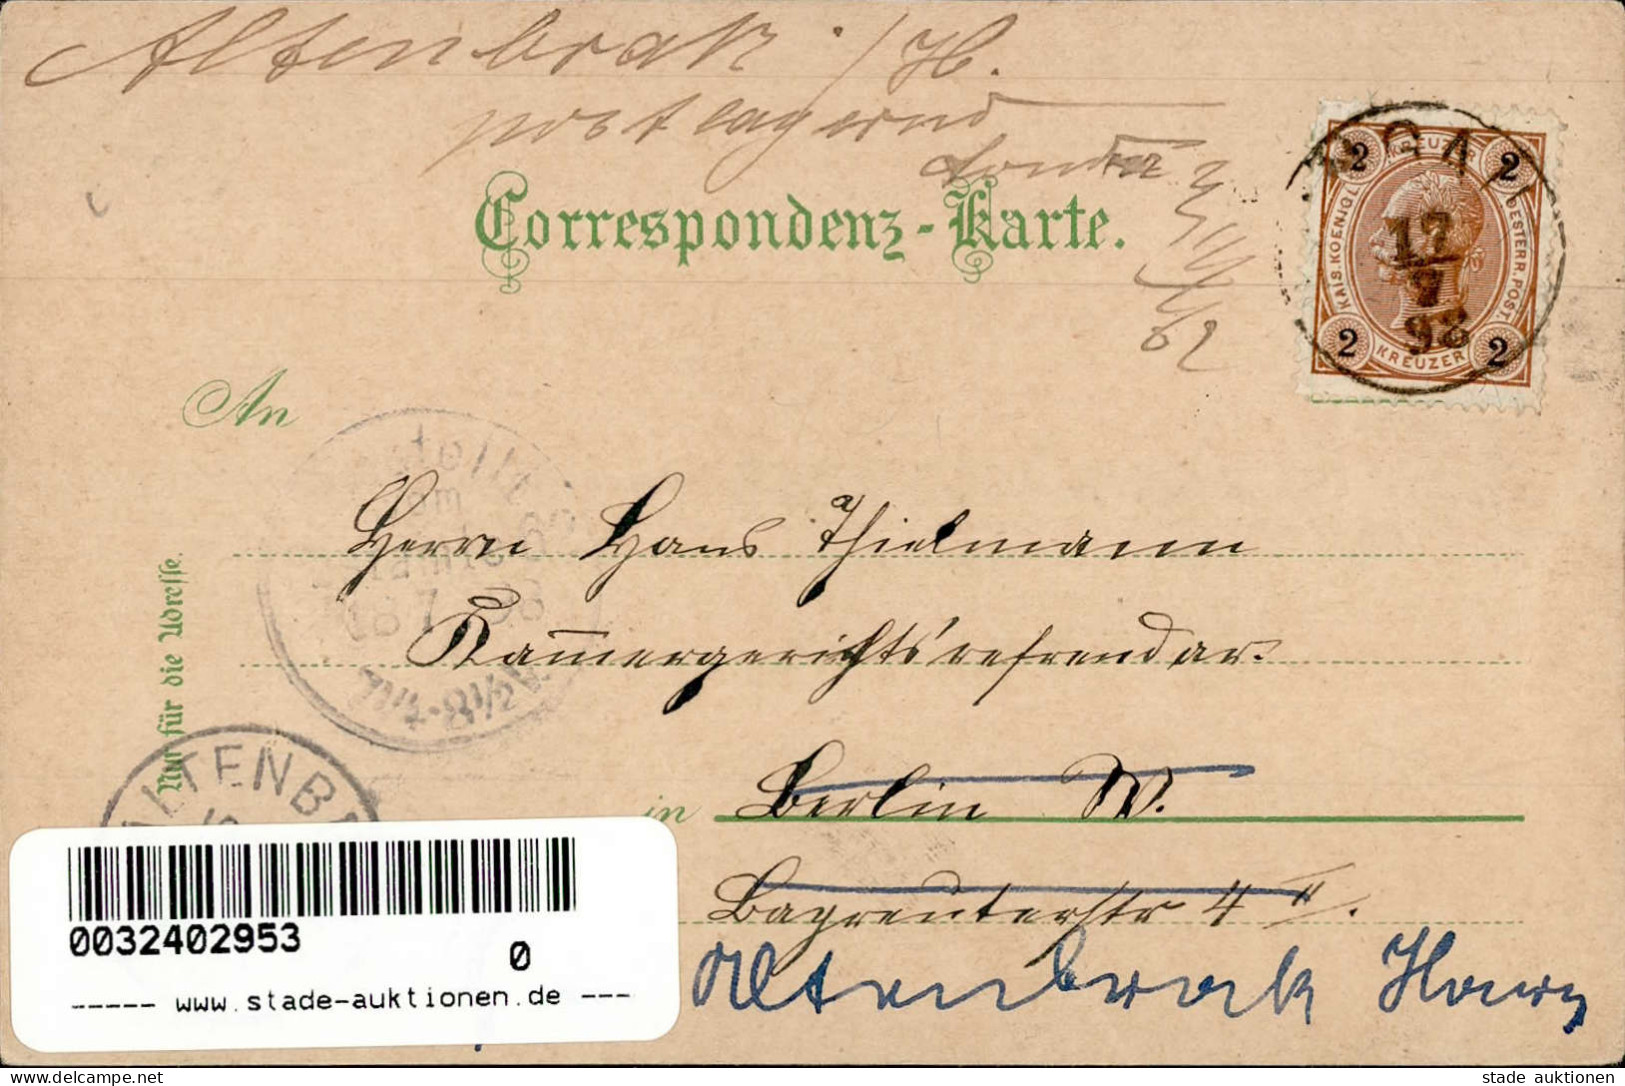 Altenbrak i/H.
postlagernd
Correspondenz-Karte.
2 KREUZER 2
KAIS. KOENIGL. OESTERR. POST.
17
7
98
2 KREUZER 2
An
Bestellt
vom
Postamte
18 7 98
7¼-8½ V.
Herrn Hans Thielmann
Kammergerichtsreferendar.
Nur für die Adresse.
in Berlin W.
Bayreutherstr 4 II.
ALTENBR
Altenbrak Harz
0032402953
0
----- www.stade-auktionen.de ---
stade auktionen
www.delcampe.net